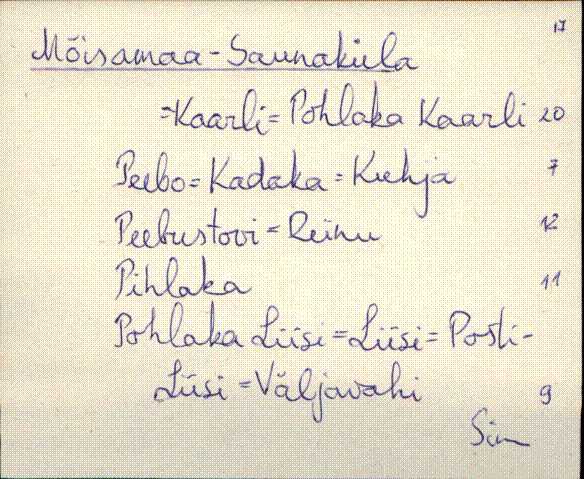 17
Mõisamaa-Saunaküla
=Kaarli=Pohlaka Kaarli 20
Peebo=Kadaka=Kuhja 7
Peebustovi=Reinu 12
Pihlaka 11
Pohlaka Liisi=Liisi=Posti-
Liisi=Väljavahi 9
Sim